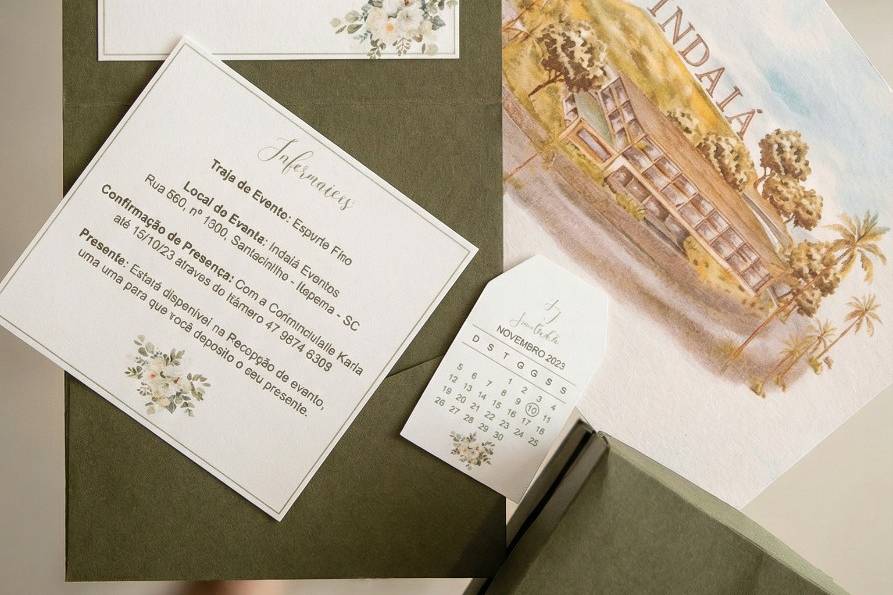 Infermaieis
Traja de Evento: Espurte Fino
Local do Evanta: Indaiá Eventos
Rua 560, nº 1300, Santacinilho - Itepema - SC
Confirmação de Presença: Com a Coriminciulaile Karla
até 15/10/23 atraves do trámero 47 9874 6309
Presente: Estatá dispenível na Recopção de evanto,
uma uma para que você deposito o ceu presente.
INDAIÁ
NOVEMBRO 2023
D S T G G S S
1 2 3 4
5 6 7 8 9 10 11
12 13 14 15 16 17 18
19 20 21 22 23 24 25
26 27 28 29 30